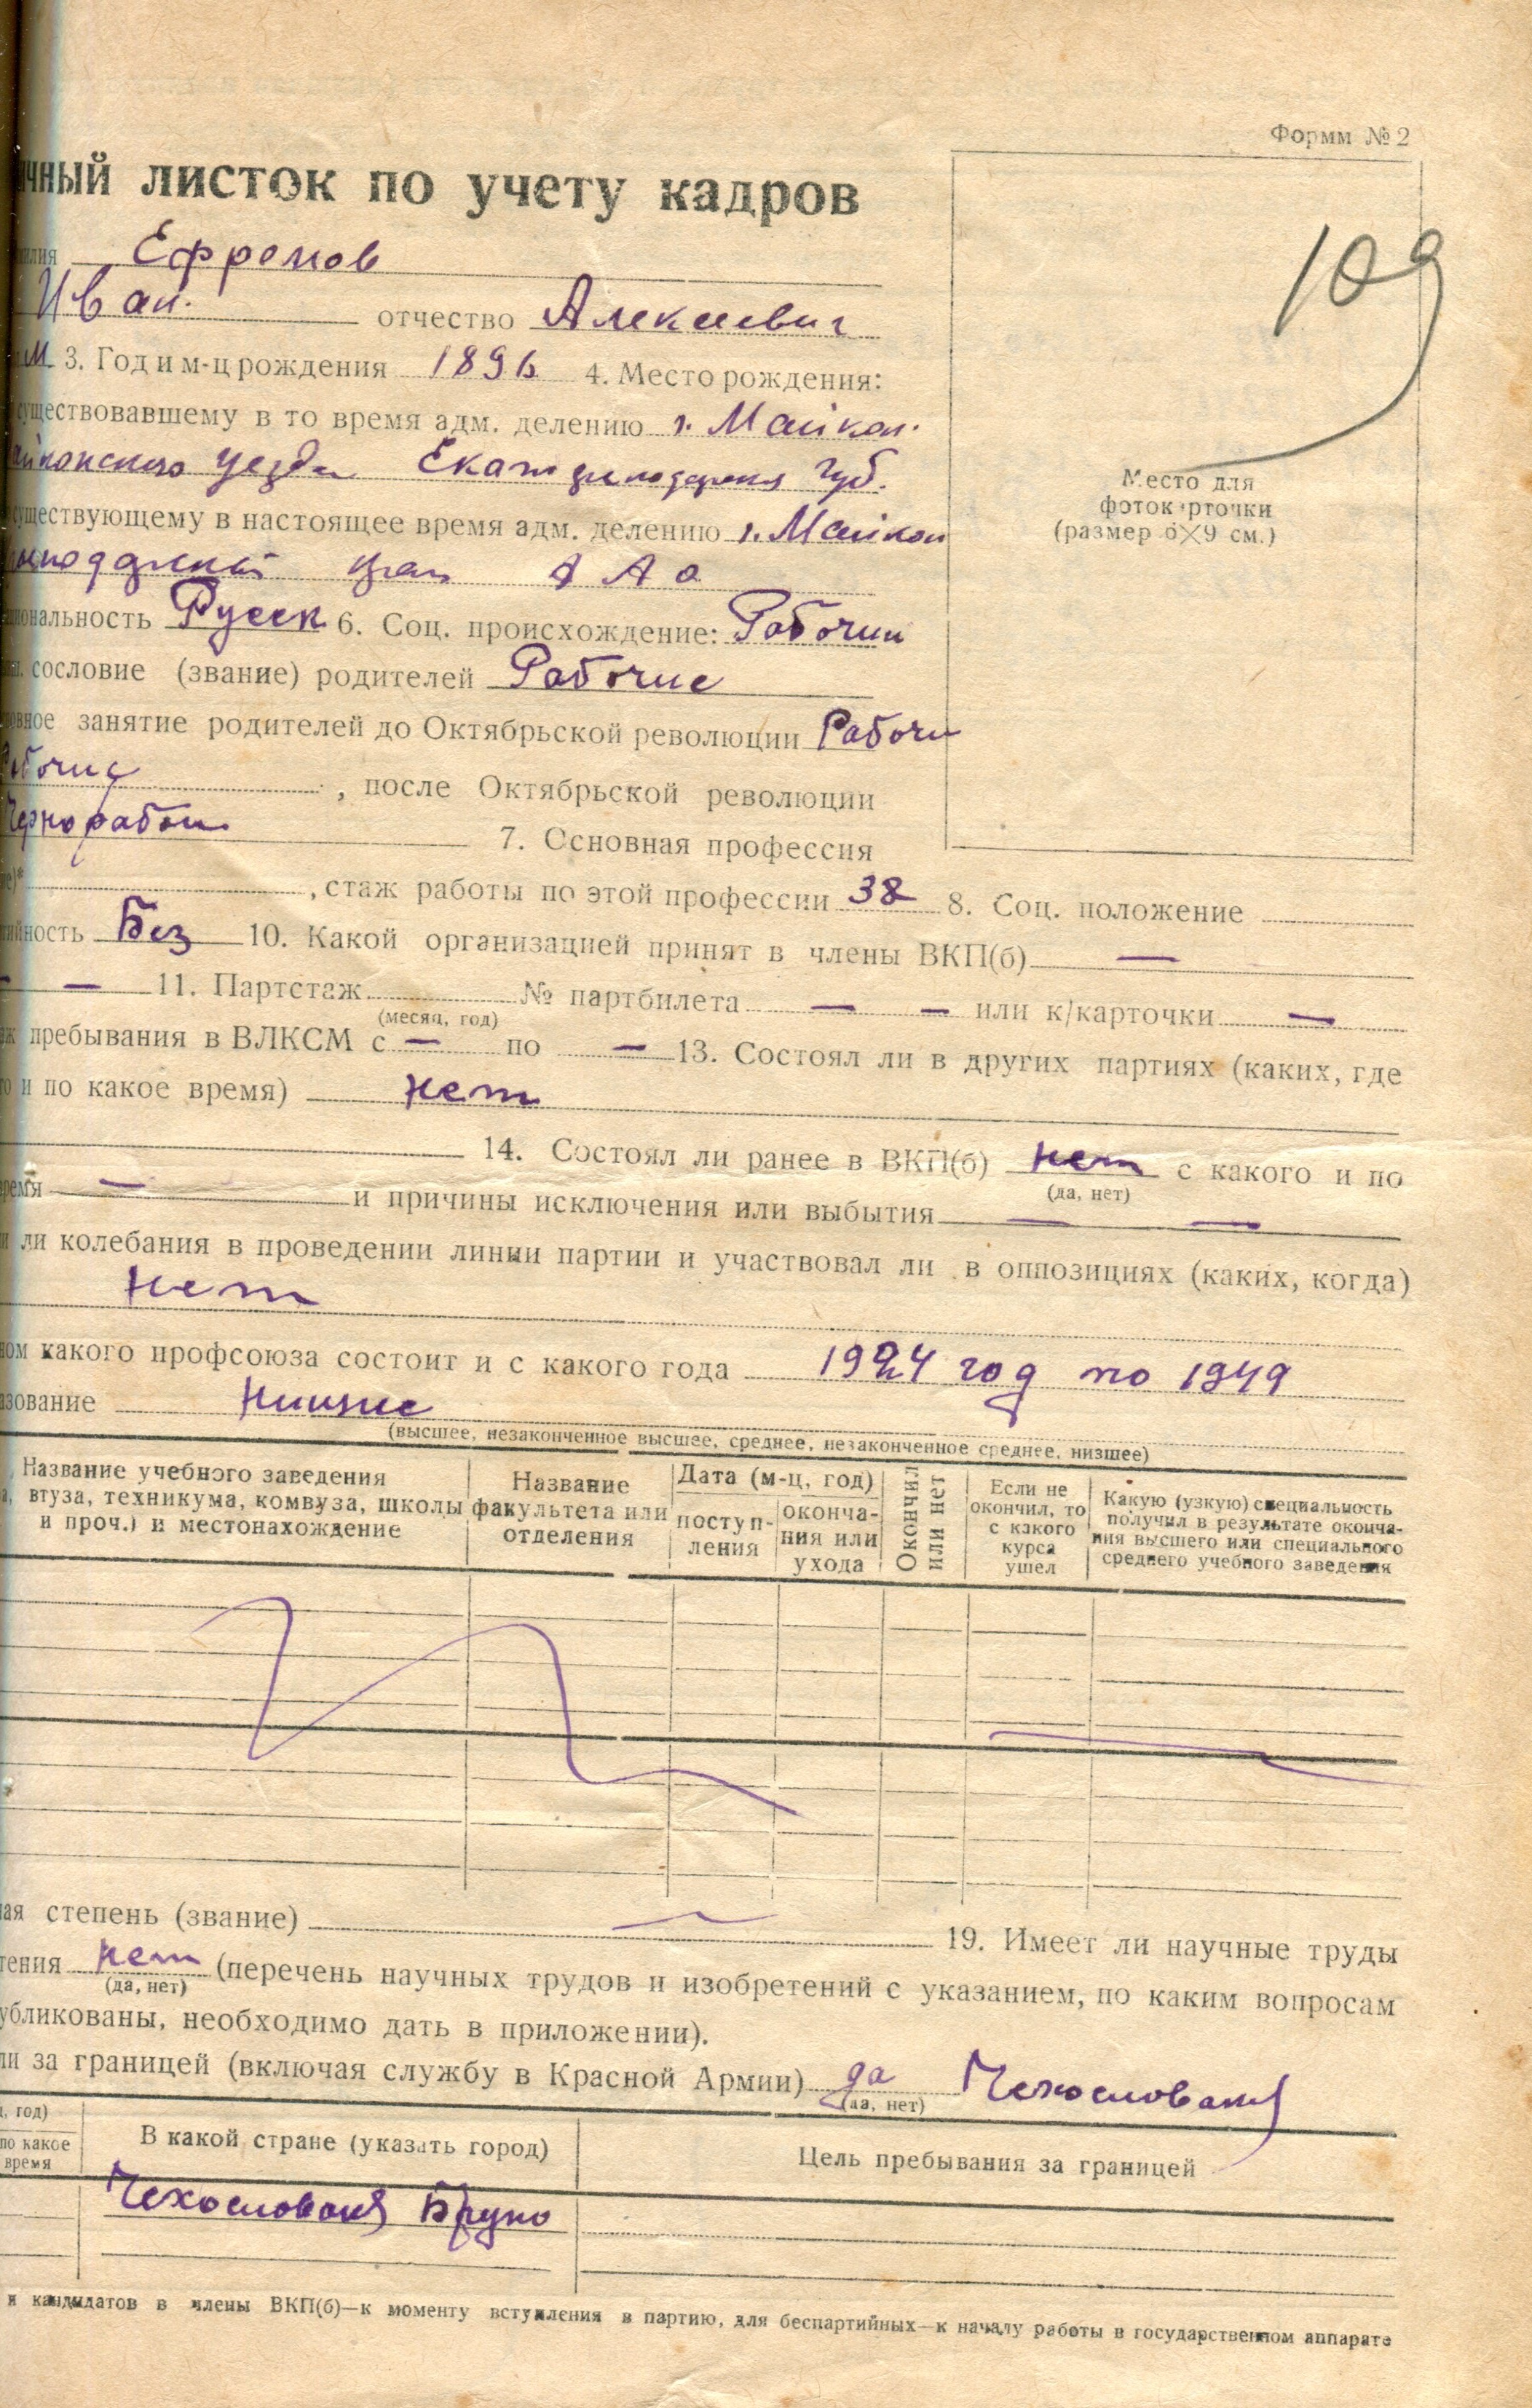 Формм № 2
чный листок по учету кадров
109
лия Ефремов
Иван. отчество Алексеевич
М 3. Год и м-ц рождения 1896 4. Место рождения:
существовавшему в то время адм. делению г. Майкоп.
йкопского уезда Екатеринодарская губ.
существующему в настоящее время адм. делению г. Майкоп
край А А О
Место для
фотокарточки
(размер 6×9 см.)
ональность Русск 6. Соц. происхождение: Рабочий
сословие (звание) родителей Рабочие
овное занятие родителей до Октябрьской революции Рабочи
бочие , после Октябрьской революции
Чернорабоч 7. Основная профессия
е)* , стаж работы по этой профессии 38 8. Соц. положение
ийность Без 10. Какой организацией принят в члены ВКП(б) —
— — 11. Партстаж № партбилета — — или к/карточки —
(месяц, год)
ж пребывания в ВЛКСМ с — по — 13. Состоял ли в других партиях (каких, где
о и по какое время) нет
14. Состоял ли ранее в ВКП(б) нет с какого и по
(да, нет)
время — и причины исключения или выбытия — —
и ли колебания в проведении линии партии и участвовал ли в оппозициях (каких, когда)
нет
ном какого профсоюза состоит и с какого года 1924 год по 1949
азование Низшие
(высшее, незаконченное высшее, среднее, незаконченное среднее, низшее)
Название учебного заведения
а, втуза, техникума, комвуза, школы
и проч.) и местонахождение
Название
факультета или
отделения
Дата (м-ц, год)
поступ-
ления
оконча-
ния или
ухода
Окончил
или нет
Если не
окончил, то
с какого
курса
ушел
Какую (узкую) специальность
получил в результате оконча-
ния высшего или специального
среднего учебного заведения
ая степень (звание) — 19. Имеет ли научные труды
тения нет (перечень научных трудов и изобретений с указанием, по каким вопросам
(да, нет)
убликованы, необходимо дать в приложении).
ли за границей (включая службу в Красной Армии) да Чехословакия
(да, нет)
ц, год)
по какое
время
В какой стране (указать город)
Цель пребывания за границей
Чехословакия Бруно
и кандидатов в члены ВКП(б)—к моменту вступления в партию, для беспартийных—к началу работы в государственном аппарате